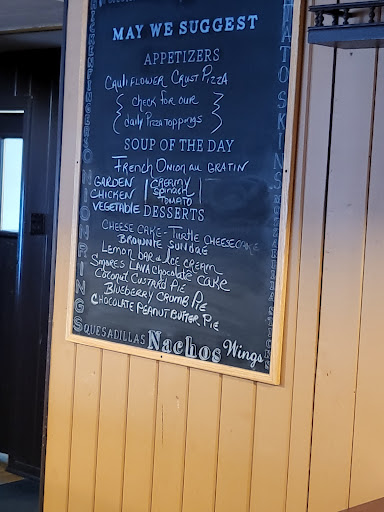 MAY WE SUGGEST
APPETIZERS
CAULIFLOWER CRUST PIZZA
CHECK FOR OUR
daily PIZZA TOPPINGS
SOUP OF THE DAY
FRENCH ONION AU GRATIN
GARDEN VEGETABLE
CHICKEN
CREAMY SPINACH TOMATO
DESSERTS
CHEESE CAKE - TURTLE CHEESECAKE
BROWNIE SUNDAE
LEMON BAR & ICE CREAM
SMORES LAVA CHOCOLATE CAKE
COCONUT CUSTARD PIE
BLUEBERRY CRUMB PIE
CHOCOLATE PEANUT BUTTER PIE
QUESADILLAS Nachos Wings
CHICKEN FINGERS ONION RINGS
TATO SKINS